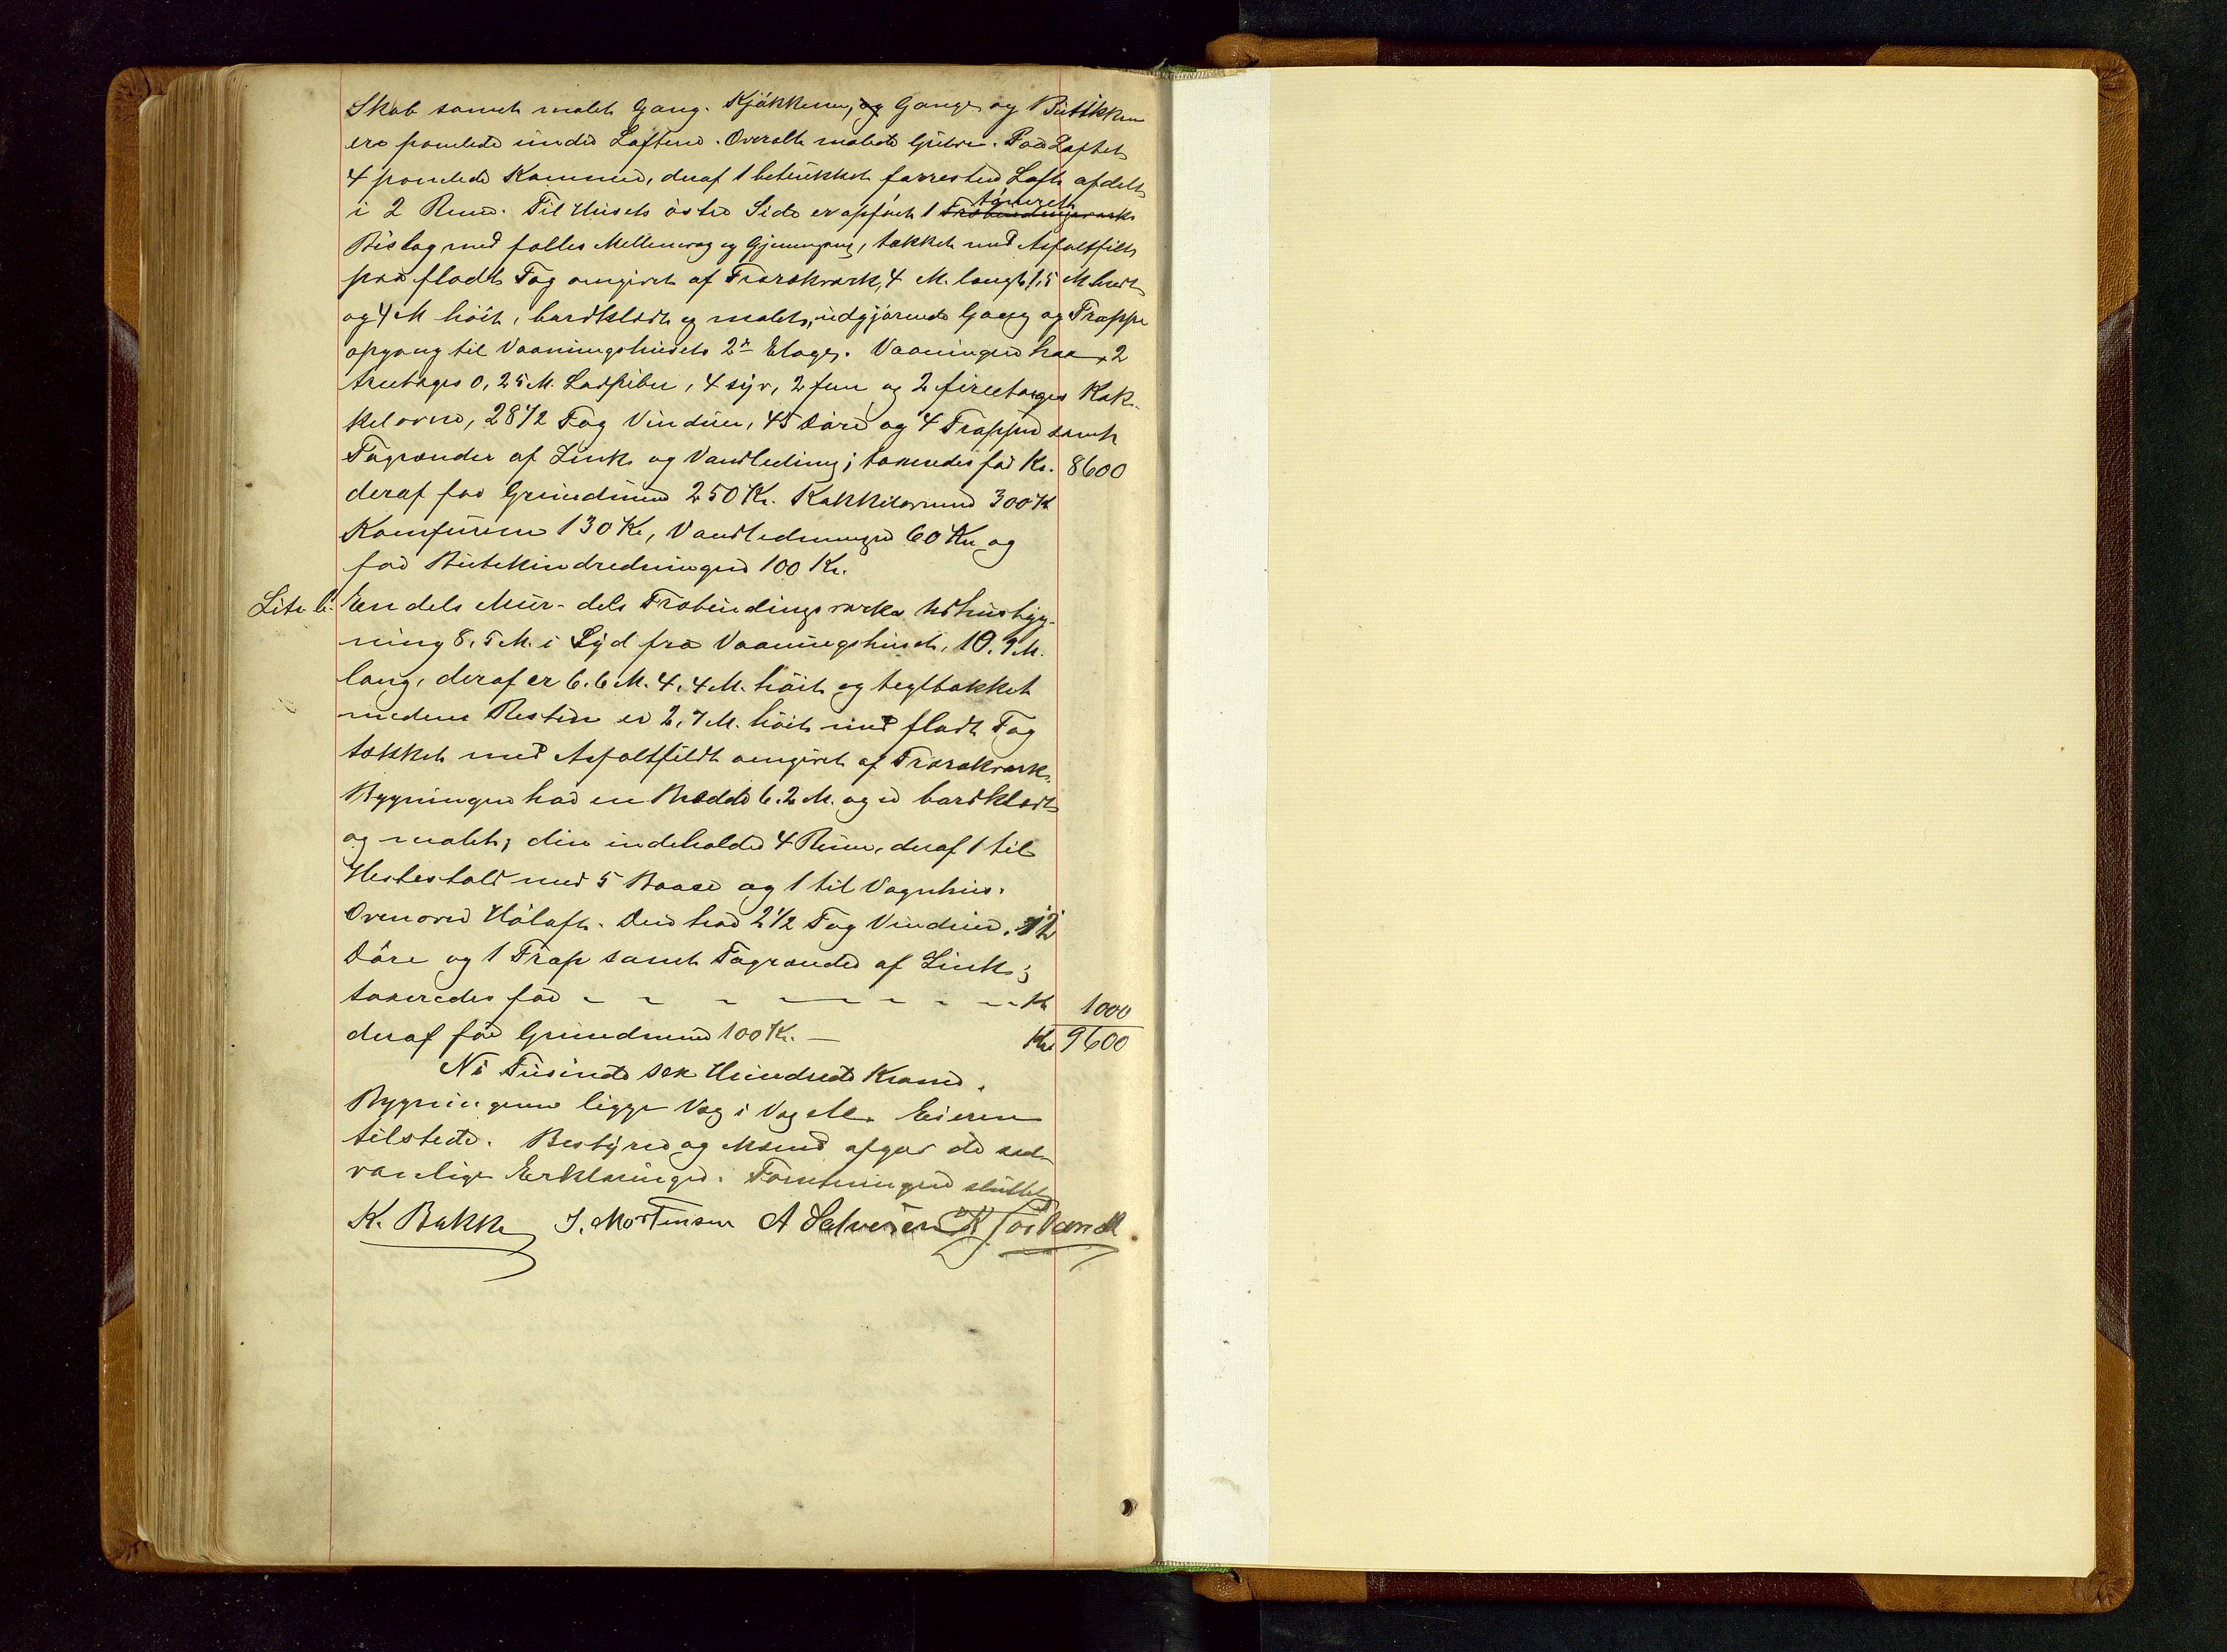 Skab samt malet Gang. Kjøkkene, og Gange og Butikken
ere panelede under Loftene. Overalt malede Gulve. Paa Loftet
4 panelede Kammer, deraf 1 betrukket forresten Loft afdelt
i 2 Rum. Til Husets østre Side er opført 1 Træbindingsværks tømret
Bislag med fælles Mellemvæg og Gjennemgang, tækket med Asfaltfilt
paa fladt Tag omgivet af Trærækværk, 4 M. langt 1,5 M bredt
og 4 M høit, bordklædt og malet, udgjørende Gang og Trappe
opgang til Vaaningshusets 2n Etage. Vaaningen har 2
treetages 0,25 M. 4 syv, 2 fem og 2 fireetages Kak-
kelovne, 28 1/2 Fag Vinduer, 45 Døre og 4 Trapper samt
Tagrender af Zink og Vandledning; taxeredes for Kr. 8600
deraf for Grundmur 250 Kr. Kakkelovnene 300 Kr
Komfurene 130 Kr, Vandledningen 60 Kr og
for Butikindredningen 100 Kr.
Litr b. En dels Mur- dels Træbindingsværks Udhusbyg-
ning 8,5 M. i Syd fra Vaaningshuset, 10.9 M.
lang, deraf er 6.6 M. 4,4 M. høit og tegltækket
medens Resten er 2,7 M. høit med fladt Tag
tækket med Asfaltfildt omgivet af Trærækværk.
Bygningen har en Bredde 6.2 M. og er bordklædt
og malet; den indeholder 4 Rum, deraf 1 til
Hestestald med 5 Baase og 1 til Vognhus.
Ovenover Høloft. Den har 2 1/2 Fag Vinduer, 12
Døre og 1 Trap samt Tagrender af Zink;
taxeredes for - - - - - - - - Kr 1000
deraf for Grundmur 100 Kr. — Kr 9600
Ni Tusinde sex Hundrede Kroner.
Bygningerne ligge Væg i Væg Eieren
tilstede. Bestyrer og Mænd afgav de sed-
vanlige Erklæringer. Forretningen sluttet
K. Bakke J. Mortensen A Salvesen